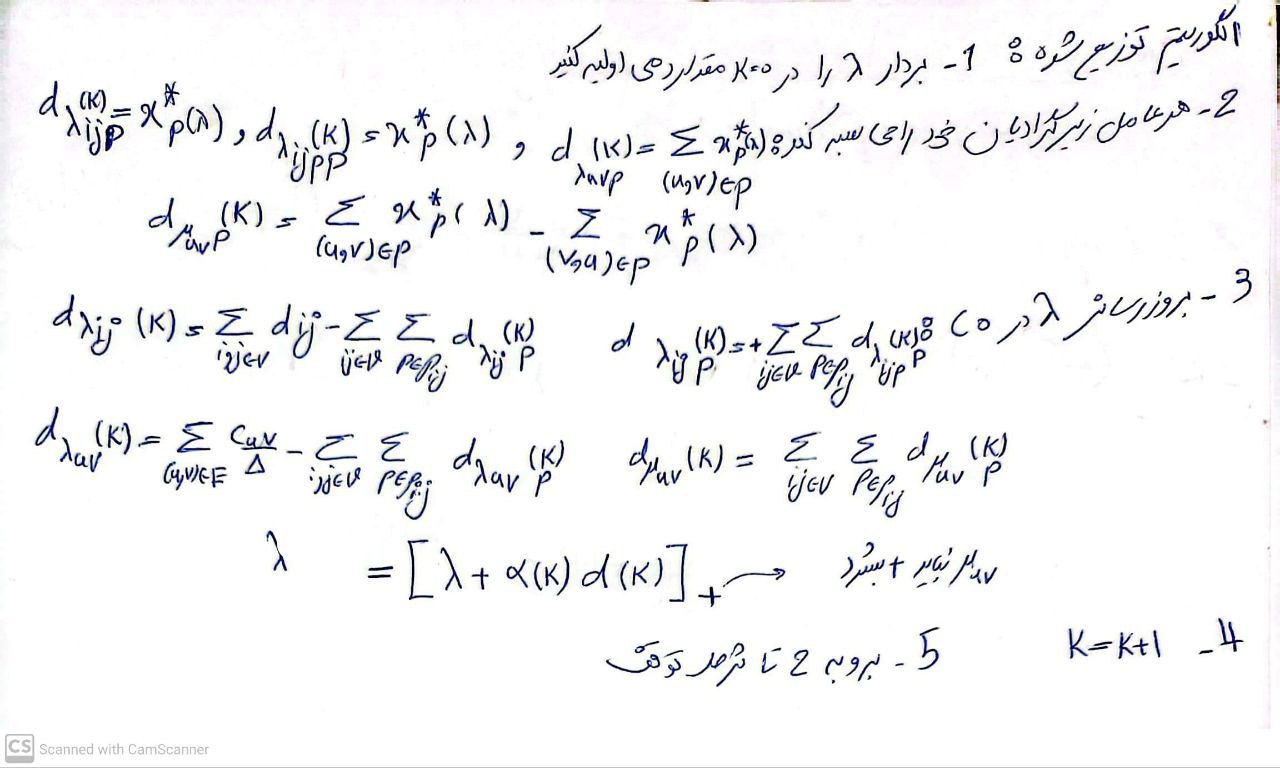 الگوریتم توزیع شده: 1- بردار λ را در K=0 مقداردهی اولیه کنید
2- هر عامل زیرگرادیان خود را محاسبه کند: d_λuvp(K) = Σ_(u,v)∈p x*p(λ) , d_λijpp(K) = x*p(λ) , d_λijp(K) = x*p(λ)
d_μuvp(K) = Σ_(u,v)∈p x*p(λ) - Σ_(v,u)∈p x*p(λ)
3- بروزرسانی λ در C0: d_λijp(K) = + Σ_ij∈v Σ_p∈pij d_λijpp(K) d_λij(K) = Σ_i,j∈v dij - Σ_ij∈v Σ_p∈pij d_λijp(K)
d_λuv(K) = Σ_(u,v)∈E Cuv/Δ - Σ_i,j∈v Σ_p∈pij d_λuvp(K) d_μuv(K) = Σ_ij∈v Σ_p∈pij d_μuvp(K)
λ = [λ + α(K) d(K)]+ → μuv نباید + بشود
4- K=K+1
5- برو به 2 تا شرط توقف
CS Scanned with CamScanner